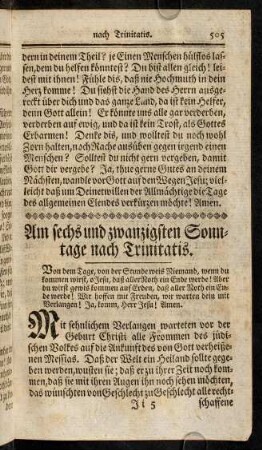 nach Trinitatis. 505
dern in deinem Theil? je Einen Menschen hülflos las-
sen, dem du helfen könntest? Du bist allen gleich! lei-
dest mit ihnen! Fühle dis, daß nie Hochmuth in dein
Herz komme! Du siehst die Hand des Herrn ausge-
reckt über dich und das ganze Land, da ist kein Helfer,
denn Gott allein! Er könnte uns alle gar verderben,
verderben auf ewig, und da ist kein Trost, als Gottes
Erbarmen! Denke dis, und wolltest du noch wohl
Zorn halten, noch Rache ausüben gegen irgend einen
Menschen? Solltest du nicht gern vergeben, damit
Gott dir vergebe? Ja, thue gerne Gutes an deinem
Nächsten, wandle vor Gott auf den Wegen Jesu; viel-
leicht daß um Deinetwillen der Allmächtige die Tage
des allgemeinen Elendes verkürzen möchte! Amen.
Am sechs und zwanzigsten Sonn-
tage nach Trinitatis.
Von dem Tage, von der Stunde weis Niemand, wenn du
kommen wirst, o Jesu, daß aller Noth ein Ende werde! Aber
du wirst gewis kommen auf Erden, daß aller Noth ein En-
de werde! Wir hoffen mit Freuden, wir warten dein mit
Verlangen! Ja, komm, Herr Jesu! Amen.
Mit sehnlichem Verlangen warteten vor der
Geburt Christi alle Frommen des jüdi-
schen Volkes auf die Ankunft des von Gott verheiße-
nen Messias. Daß der Welt ein Heiland sollte gege-
ben werden, wusten sie; daß er zu ihrer Zeit noch kom-
men, daß sie mit ihren Augen ihn noch sehen möchten,
das wünschten von Geschlecht zu Geschlecht alle recht-
Ji 5 schaffene